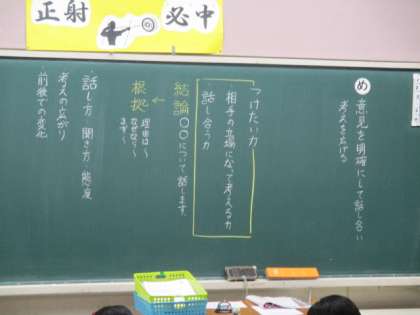 正射必中
め 意見を明確にして話し合い
考えを広げる
つけたい力
・相手の立場になって考える力
話し合う力
結論 〇〇について話します。
根拠 理由は〜
なぜなら〜
ます〜
・話し方・聞き方・態度
・考えの広がり
・前後での変化